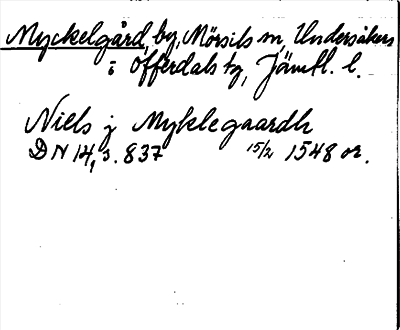 Myckelgård, by, Mörsils sn, Undersåkers
i Offerdals tg, Jämtl. l.
Niels j Myklegaardh
DN 14, s. 837 15/2 1548 or.